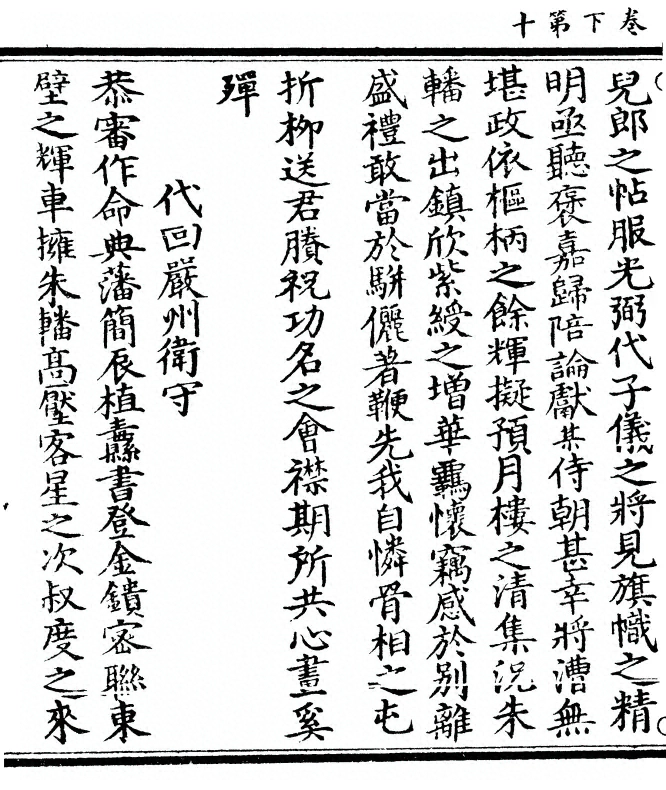 卷下第十
兒郎之帖服光弼代子儀之將見旗幟之精
明亟聽褒嘉歸陪論獻某侍朝甚幸將漕無
堪政依樞柄之餘輝擬預月樓之清集況朱
轓之出鎮欣紫綬之增華羈懷竊感於別離
盛禮敢當於駢儷著鞭先我自憐骨相之屯
折柳送君賸祝功名之會襟期所共心畫奚
殫
代回嚴州衛守
恭審作命典藩簡辰植纛書登金鐀密聯東
壁之輝車擁朱轓高壓客星之次叔度之來